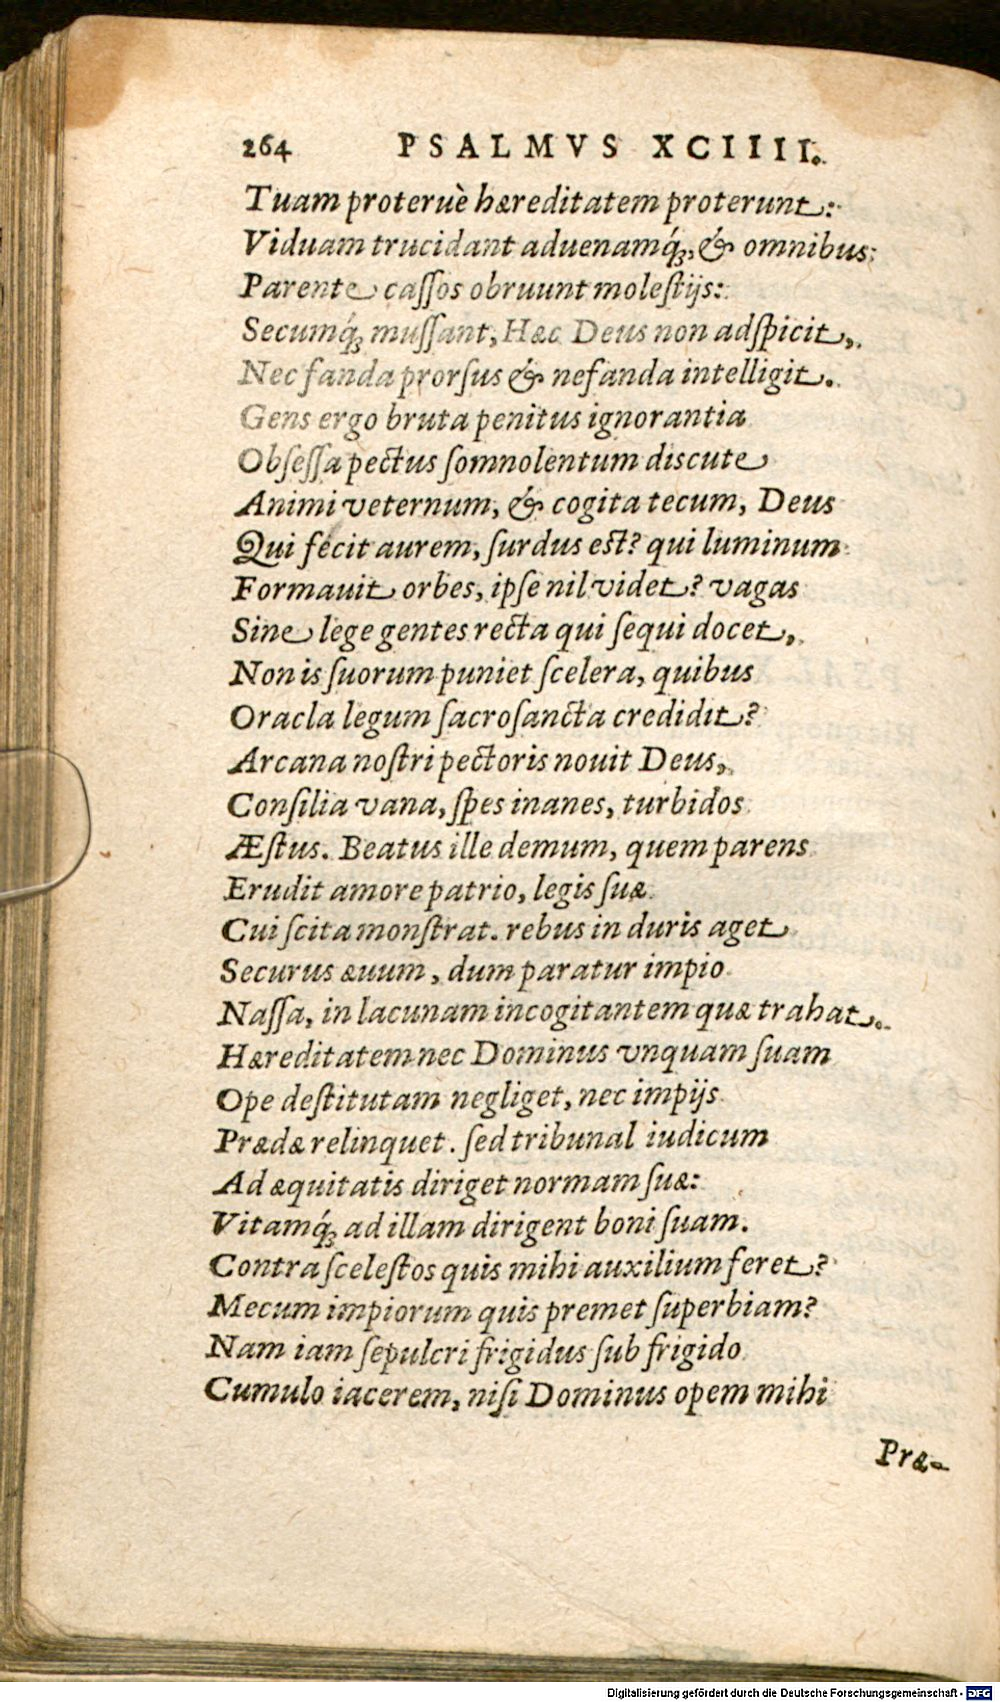 264 PSALMVS XCIIII.
Tuam proteruè hæreditatem proterunt:
Viduam trucidant aduenamq́;, & omnibus
Parente cassos obruunt molestijs:
Secumq́; mussant, Hæc Deus non adspicit,
Nec fanda prorsus & nefanda intelligit.
Gens ergo bruta penitus ignorantia
Obsessa pectus somnolentum discute
Animi veternum, & cogita tecum, Deus
Qui fecit aurem, surdus est? qui luminum
Formauit orbes, ipse nil videt? vagas
Sine lege gentes recta qui sequi docet,
Non is suorum puniet scelera, quibus
Oracla legum sacrosancta credidit?
Arcana nostri pectoris nouit Deus,
Consilia vana, spes inanes, turbidos
Æstus. Beatus ille demum, quem parens
Erudit amore patrio, legis suæ
Cui scita monstrat. rebus in duris aget
Securus æuum, dum paratur impio
Nassa, in lacunam incogitantem quæ trahat.
Hæreditatem nec Dominus vnquam suam
Ope destitutam negliget, nec impijs
Prædæ relinquet. sed tribunal iudicum
Ad æquitatis diriget normam suæ:
Vitamq́; ad illam dirigent boni suam.
Contra scelestos quis mihi auxilium feret?
Mecum impiorum quis premet superbiam?
Nam iam sepulcri frigidus sub frigido
Cumulo iacerem, nisi Dominus opem mihi
Præ-
Digitalisierung gefördert durch die Deutsche Forschungsgemeinschaft - DFG